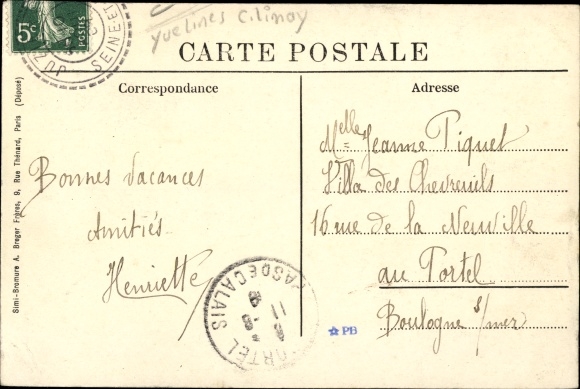 5c
POSTES
SEINE-ET
JUZ
Yvelines C. Limay
CARTE POSTALE
Correspondance
Adresse
Simi-Bromure A. Breger Frères, 9, Rue Thénard, Paris (Déposé)
Bonnes vacances
Amitiés
Henriette
Melle Jeanne Piquet
Villa des Chevreuils
16 rue de la Neuville
au Portel
Boulogne s/mer
PAS DE CALAIS
PORTEL
11
PB